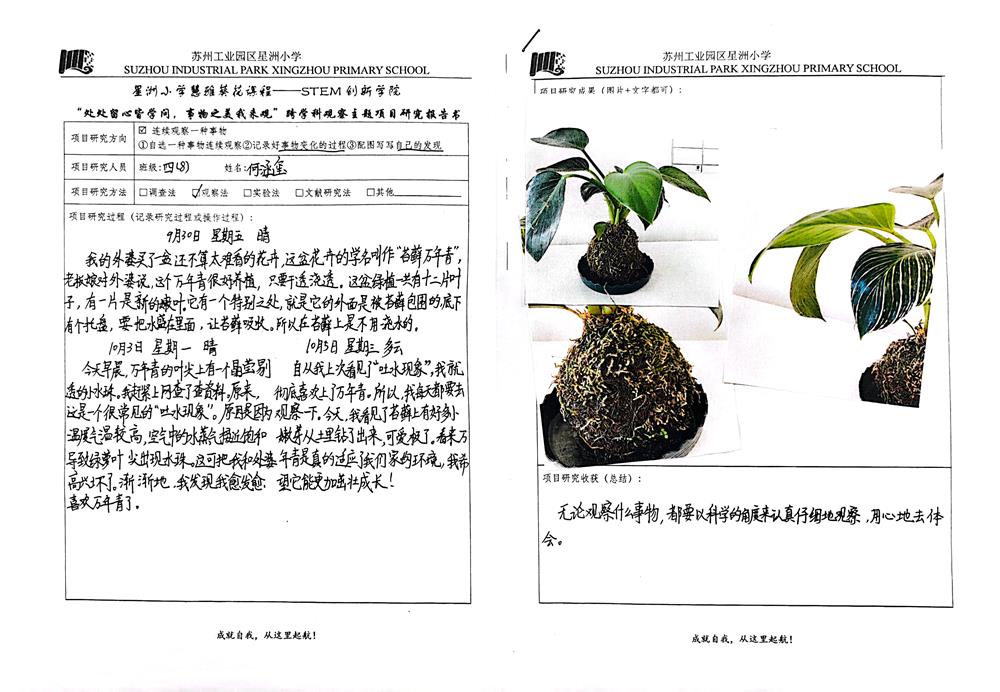 苏州工业园区星洲小学
SUZHOU INDUSTRIAL PARK XINGZHOU PRIMARY SCHOOL
星洲小学慧雅葵花课程——STEM创新学院
“处处留心皆学问，事物之美我来观”跨学科观察主题项目研究报告书
项目研究方向
☑ 连续观察一种事物
①自选一种事物连续观察②记录好事物变化的过程③配图写写自己的发现
项目研究人员 班级：四(8) 姓名：何
项目研究方法 □调查法 ☑观察法 □实验法 □文献研究法 □其他
项目研究过程（记录研究过程或操作过程）：
9月30日 星期五 晴
我的外婆买了一盆还不算太难看的花卉，这盆花卉的学名叫作“苔藓万年青”，
老板娘对外婆说，这个万年青很好养殖，只要干透浇透。这盆绿植一共有十二片叶
子，有一片是新的嫩叶。它有一个特别之处，就是它的外面是被苔藓包围的，底下
有个托盘，要把水盛在里面，让苔藓吸收。所以在苔藓上是不用浇水的。
10月3日 星期一 晴
今天早晨，万年青的叶尖上有一个晶莹剔
透的小水珠。我赶紧上网查了查资料。原来，
这是个很常见的“吐水现象”。原因是因为
温度气温较高，空气中的水蒸气接近饱和
导致绿萝叶尖出现水珠。这可把我和外婆
高兴坏了。渐渐地，我发现我愈发愈
喜欢万年青了。
10月5日 星期三 多云
自从我上次看见了“吐水现象”，我就
彻底喜欢上了万年青。所以，我每天都要去
观察一下。今天，我看见了苔藓上有好多小
嫩芽从土里钻了出来，可爱极了。看来万
年青是真的适应了我们家的环境，我希
望它能更加茁壮成长！
成就自我，从这里起航！
苏州工业园区星洲小学
SUZHOU INDUSTRIAL PARK XINGZHOU PRIMARY SCHOOL
项目研究成果（图片+文字都可）：
项目研究收获（总结）：
无论观察什么事物，都要以科学的角度来认真仔细地观察，用心地去体
会。
成就自我，从这里起航！